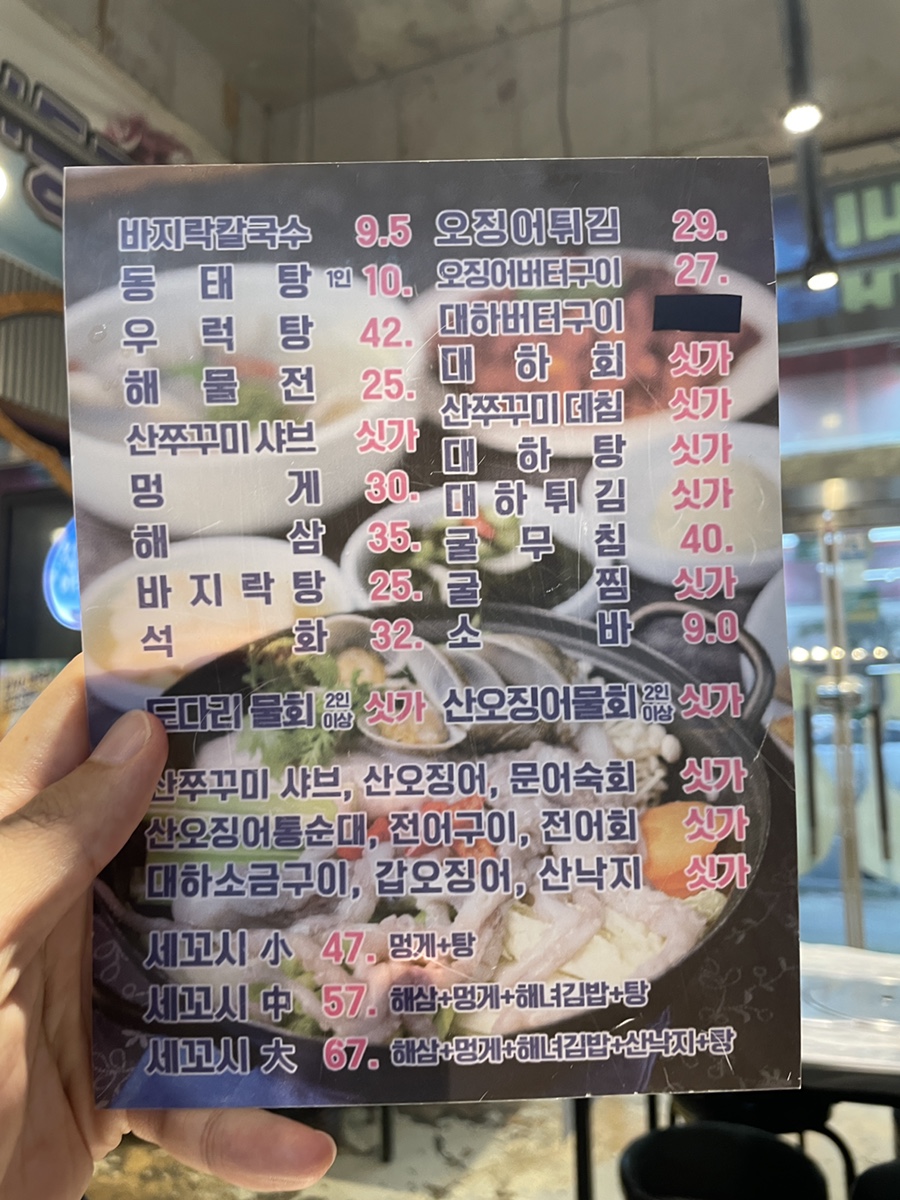 바지락칼국수 9.5
동태탕 1인 10.
우럭탕 42.
해물전 25.
산쭈꾸미 샤브 싯가
멍게 30.
해삼 35.
바지락탕 25.
석화 32.
오징어튀김 29.
오징어버터구이 27.
대하버터구이
대하회 싯가
산쭈꾸미 데침 싯가
대하탕 싯가
대하튀김 싯가
굴무침 40.
굴찜 싯가
소바 9.0
도다리 물회 2인이상 싯가
산오징어물회 2인이상 싯가
산쭈꾸미 샤브, 산오징어, 문어숙회 싯가
산오징어통순대, 전어구이, 전어회 싯가
대하소금구이, 갑오징어, 산낙지 싯가
세꼬시 小 47. 멍게+탕
세꼬시 中 57. 해삼+멍게+해녀김밥+탕
세꼬시 大 67. 해삼+멍게+해녀김밥+산낙지+탕